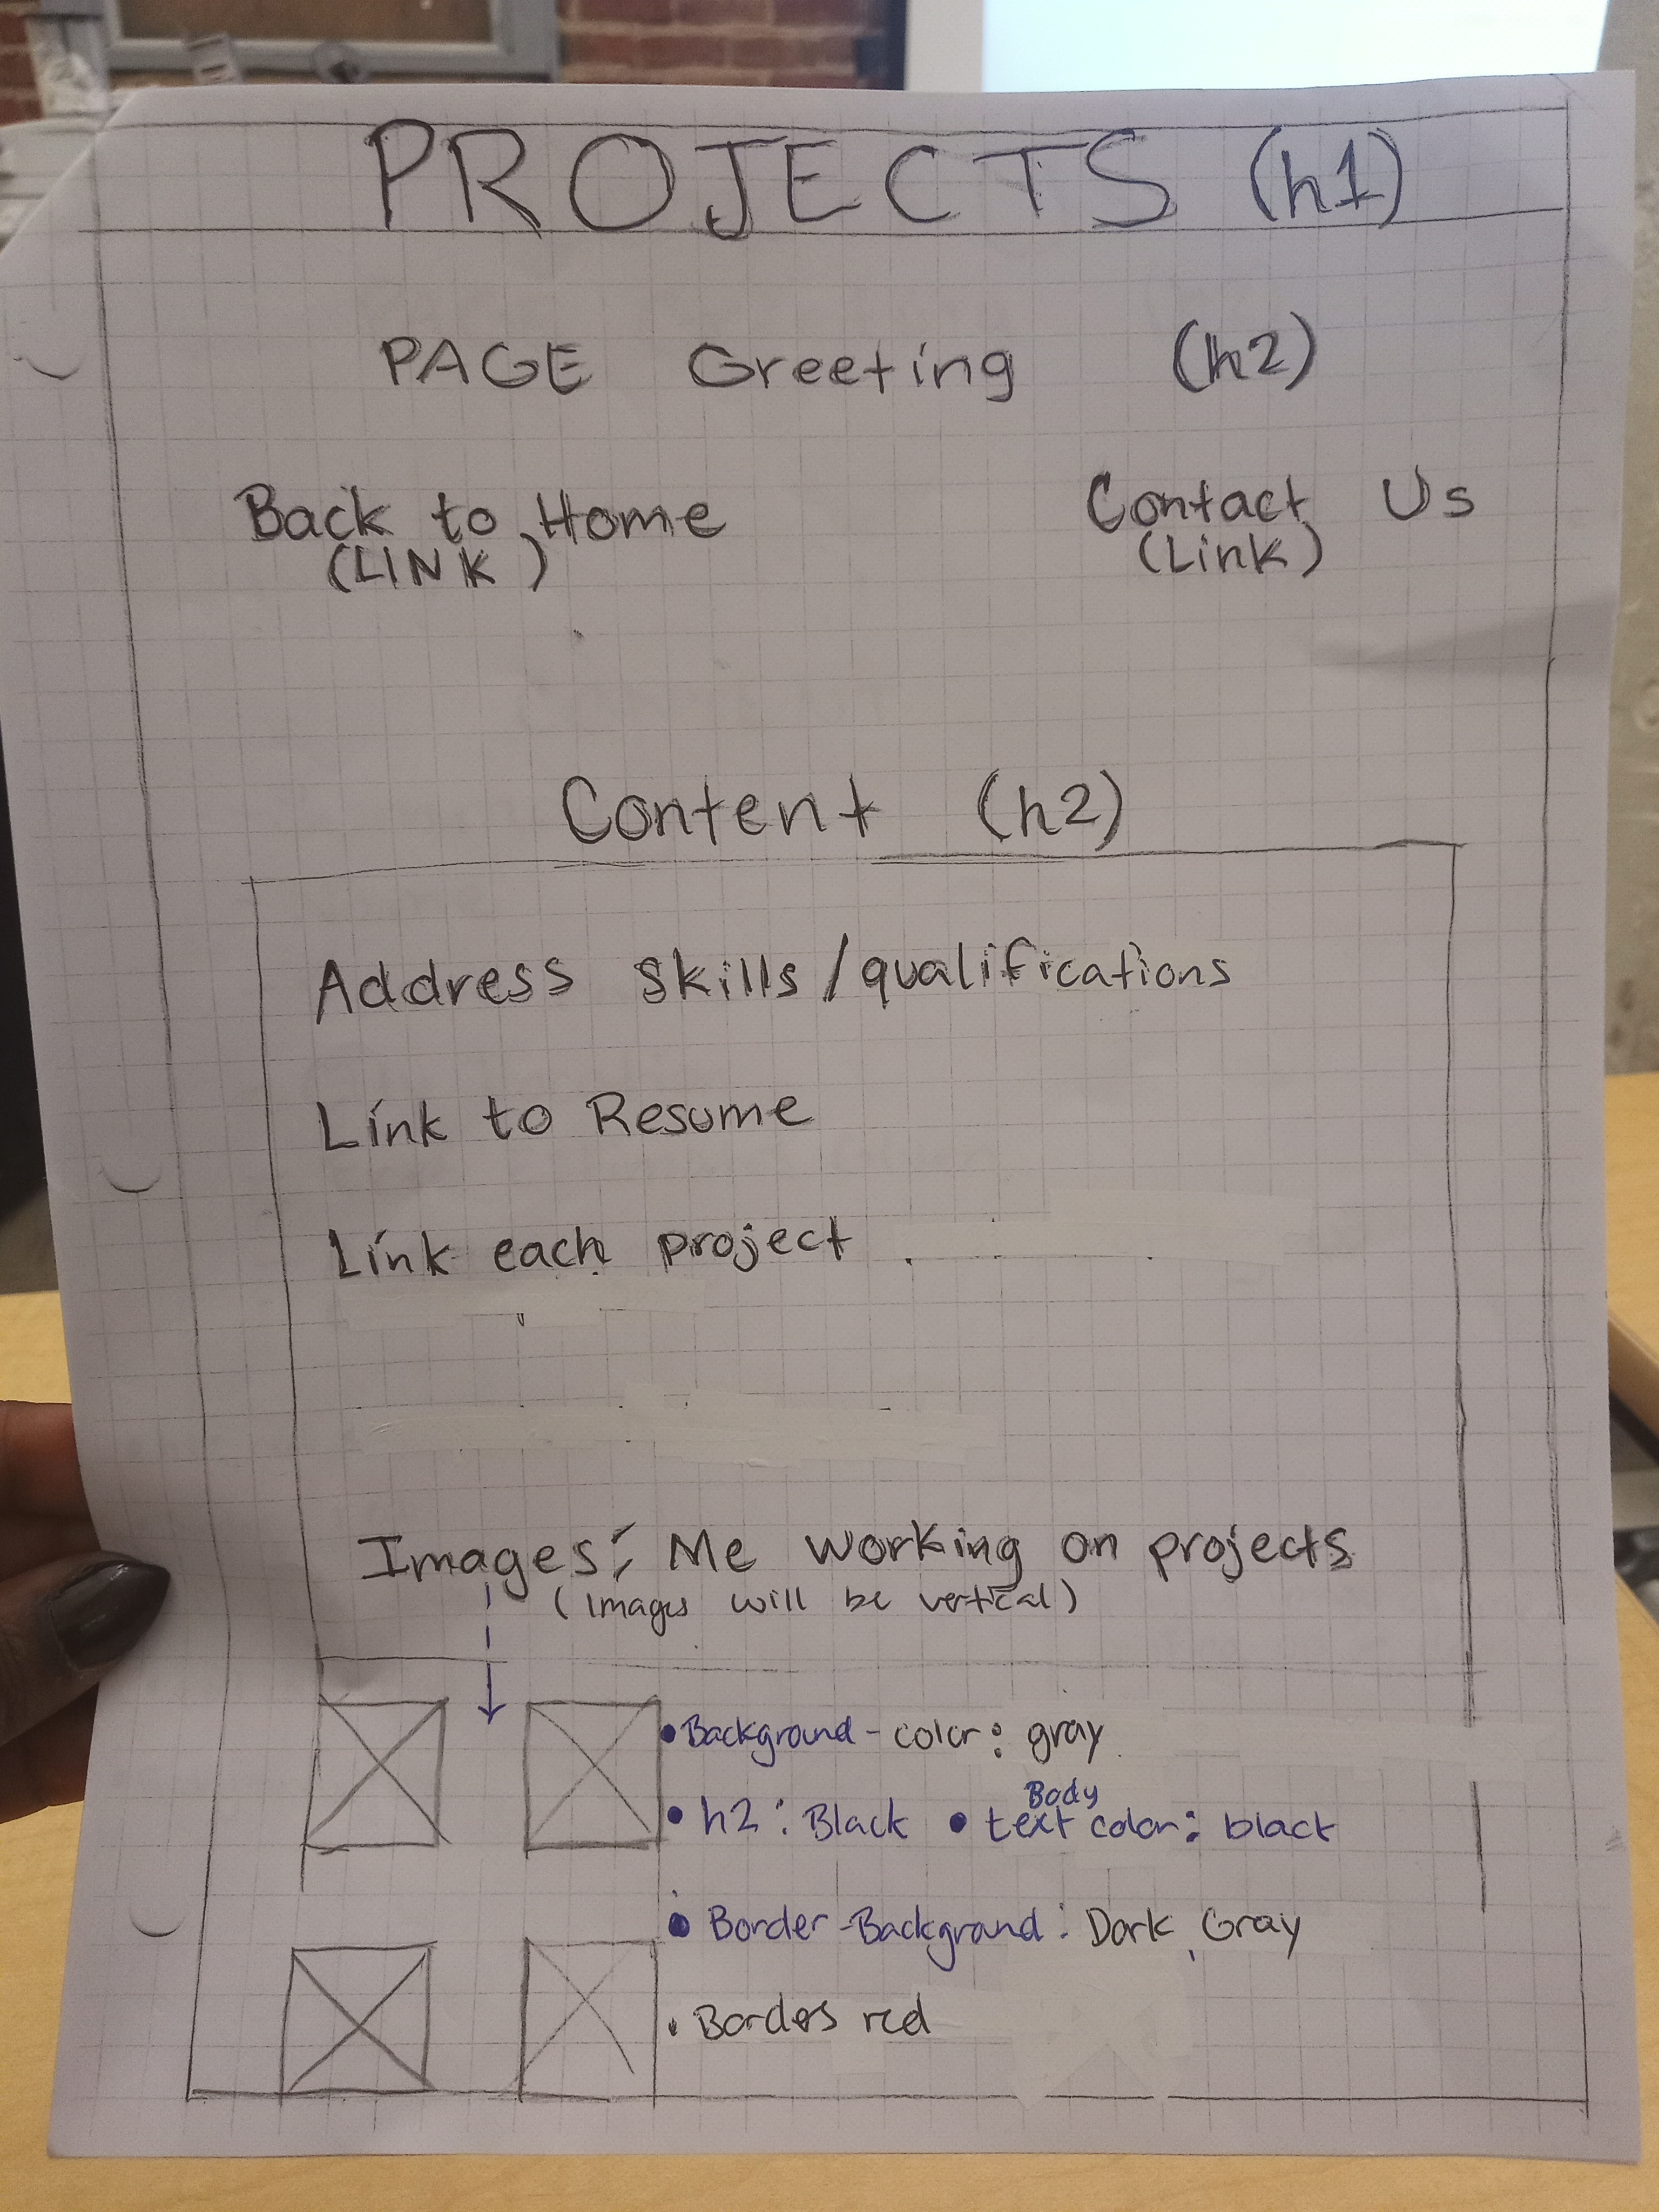 PROJECTS (h1)
PAGE Greeting (h2)
Back to Home
(LINK)
Contact Us
(Link)
Content (h2)
Address skills/qualifications
Link to Resume
Link each project
Images: Me working on projects
(Images will be vertical)
• Background-color: gray
• h2: Black • text color: black
Body
• Border-Background: Dark Gray
• Borders red